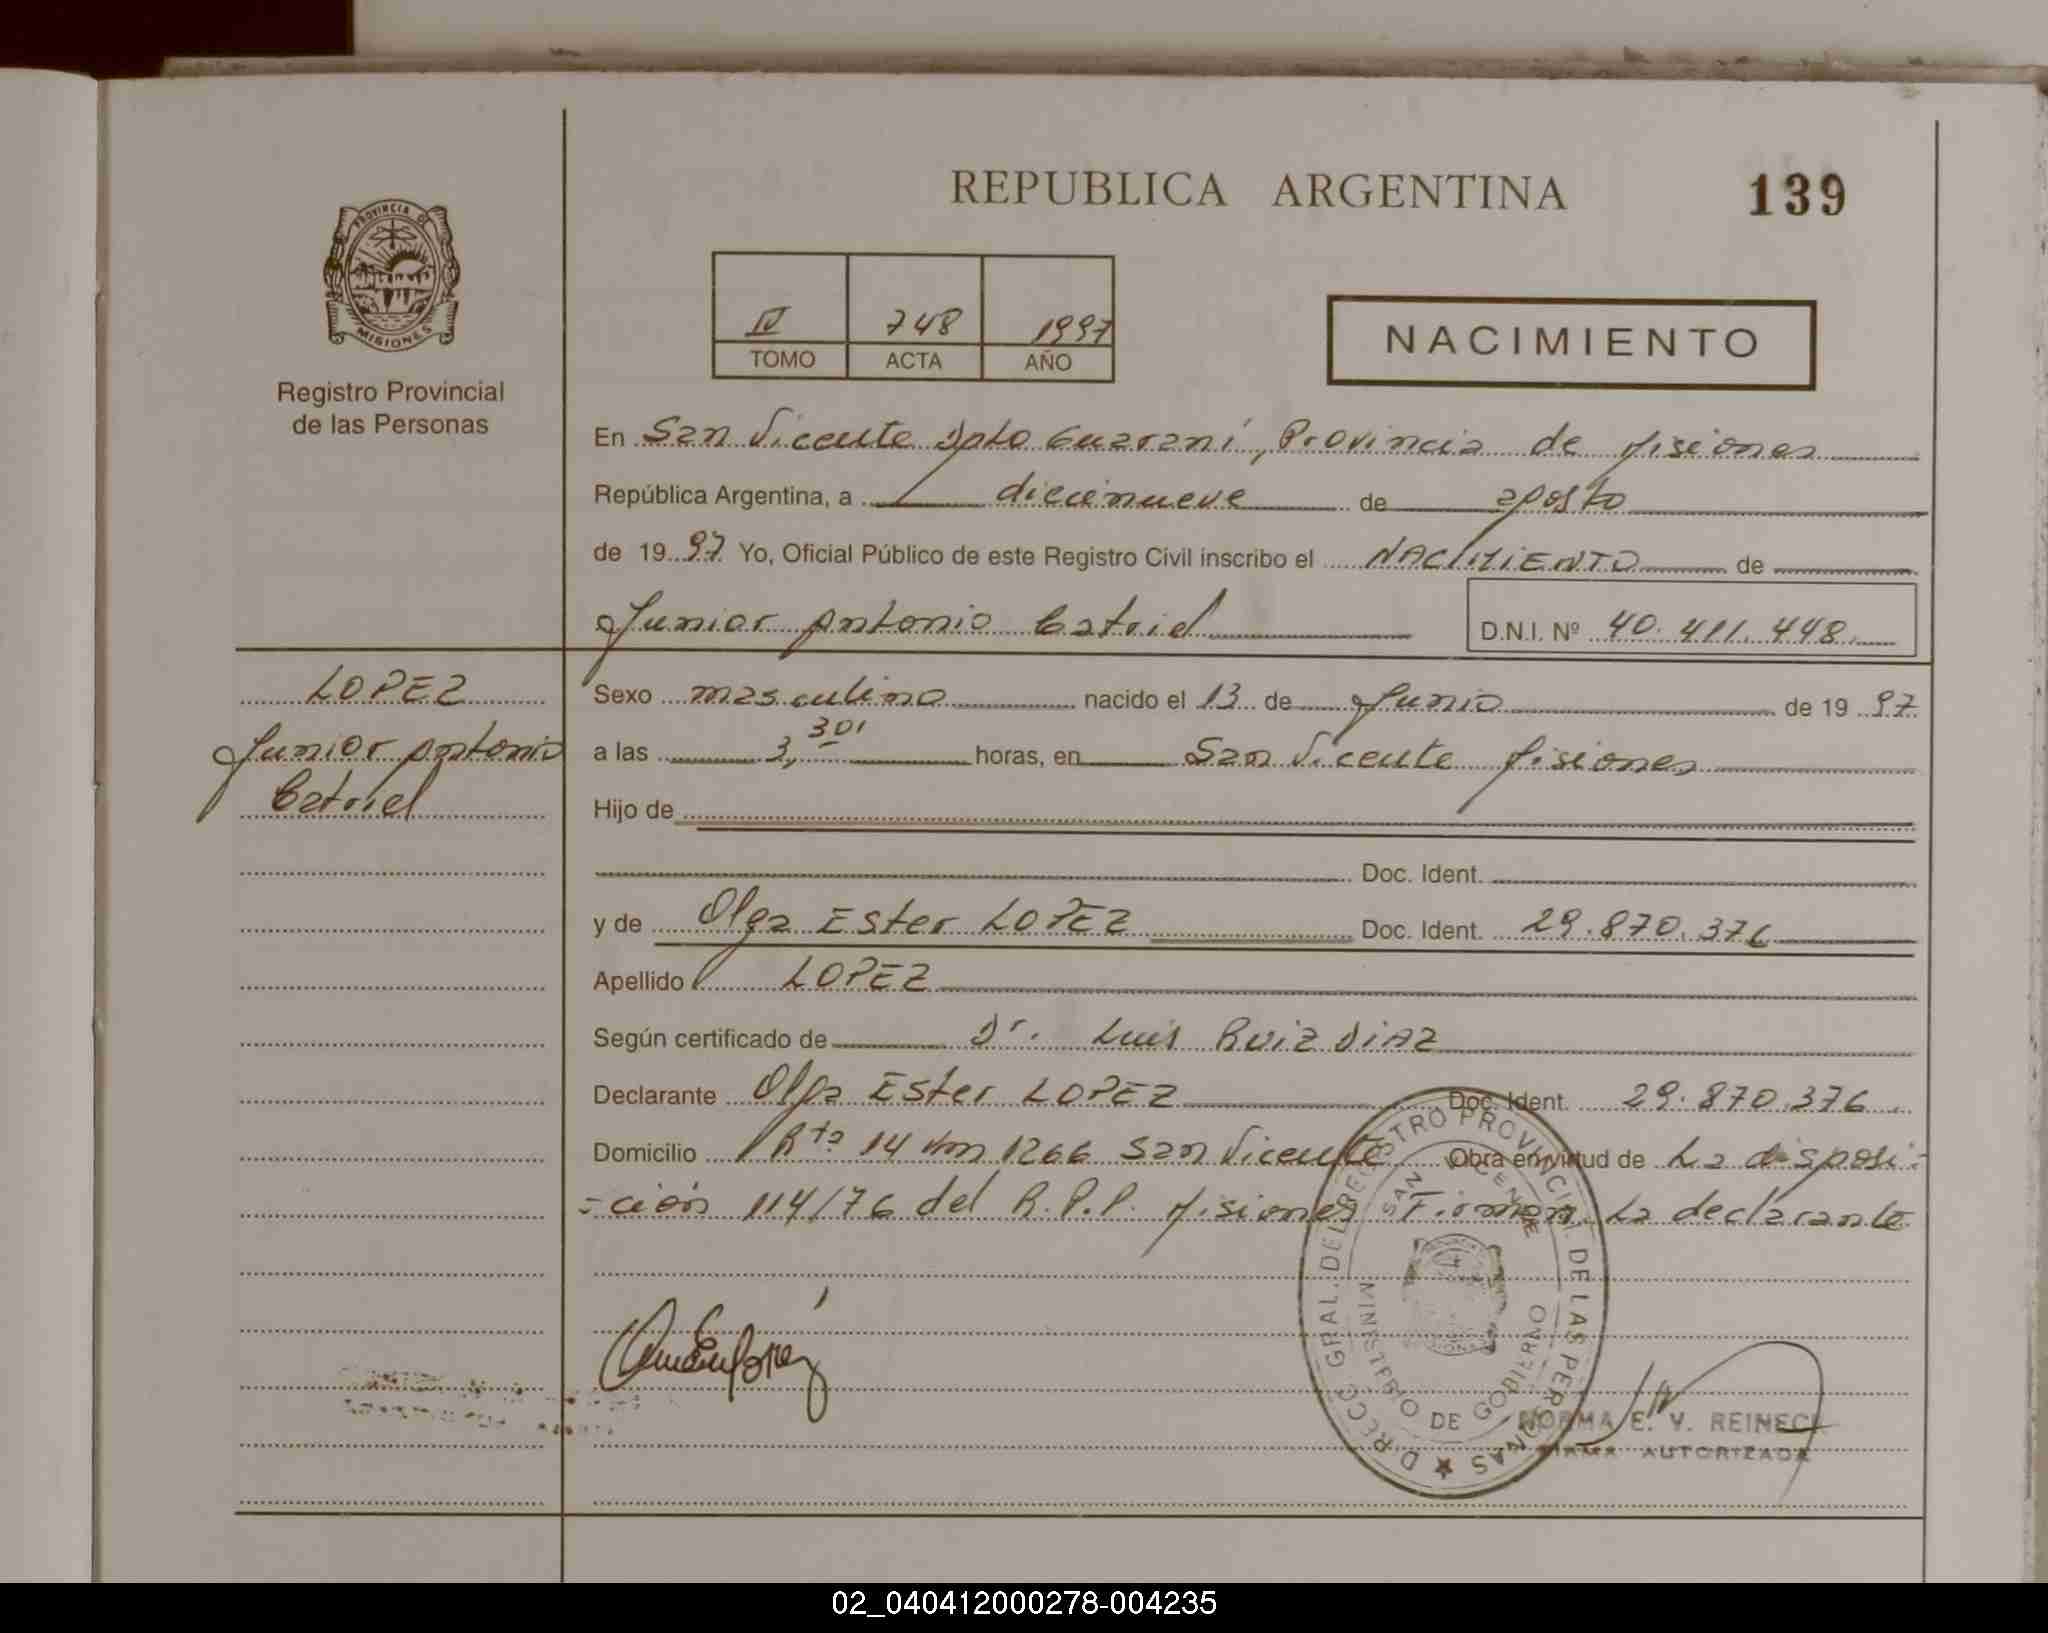 REPUBLICA ARGENTINA
139
PROVINCIA DE
MISIONES
Registro Provincial
de las Personas
IV 748 1997
TOMO ACTA AÑO
NACIMIENTO
En San Vicente Dpto Guaraní, Provincia de Misiones
República Argentina, a diecinueve de agosto
de 1997 Yo, Oficial Público de este Registro Civil inscribo el NACIMIENTO de
Junior Antonio Catriel D.N.I. Nº 40.411.448
LOPEZ
Junior Antonio
Catriel
Sexo masculino nacido el 13 de Junio de 1997
a las 3,30' horas, en San Vicente Misiones
Hijo de
Doc. Ident.
y de Olga Ester LOPEZ Doc. Ident. 29.870.376
Apellido LOPEZ
Según certificado de Dr. Luis Ruiz DIAZ
Declarante Olga Ester LOPEZ Doc. Ident. 29.870.376
Domicilio Rta 14 km 1266 San Vicente Obra en virtud de La disposi-
-ción 114/76 del R.P.P. Misiones Firman La declarante
DIRECC. GRAL. DEL REGISTRO PROVINCIAL DE LAS PERSONAS
SAN VICENTE
MINISTERIO DE GOBIERNO
NORMA E. V. REINECK
FIRMA AUTORIZADA
02_040412000278-004235